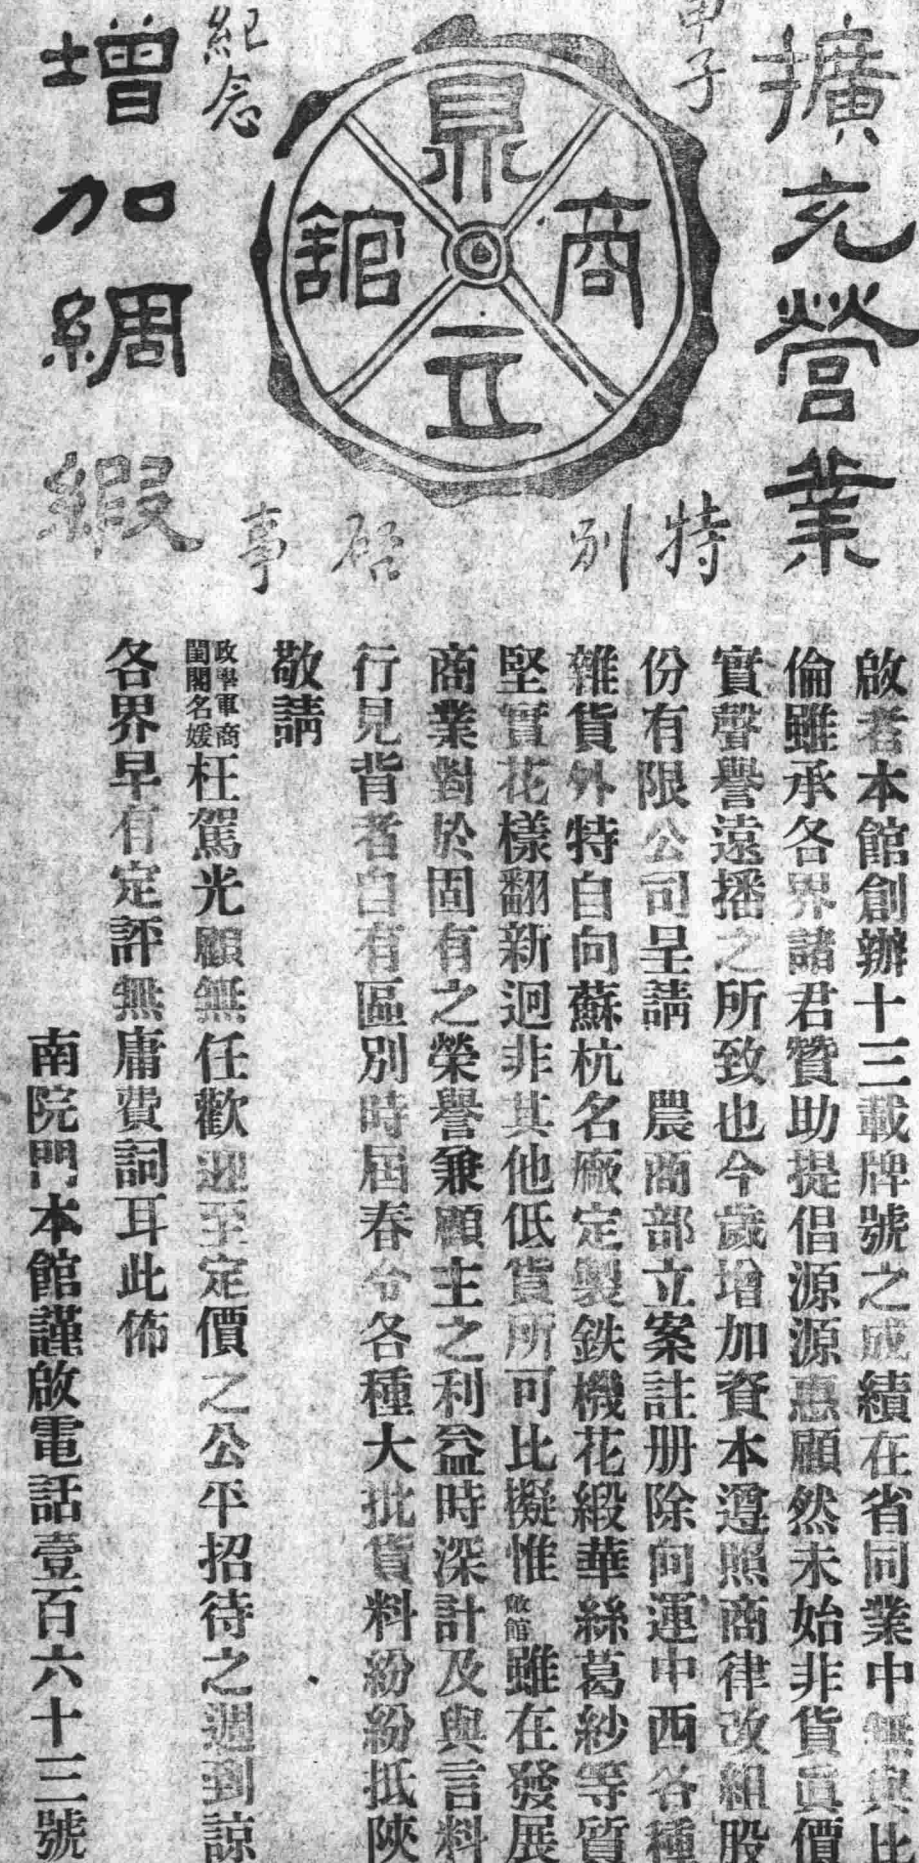 擴充營業
甲子
鼎立商館
紀念
增加綢緞
特別啓事
啟者本館創辦十三載牌號之成績在省同業中無與比
倫雖承各界諸君贊助提倡源源惠顧然未始非貨眞價
實聲譽遠播之所致也今歲增加資本遵照商律改組股
份有限公司呈請　農商部立案註册除向運中西各種
雜貨外特自向蘇杭名廠定製鉄機花緞華絲葛紗等質
堅實花樣翻新迥非其他低貨所可比擬惟敝館雖在發展
商業對於固有之榮譽兼顧主之利益時深計及與言料
行見背者自有區別時屆春令各種大批貨料紛紛抵陝
敬請
政學軍商閨閣名媛枉駕光顧無任歡迎至定價之公平招待之週到諒
各界早有定評無庸費詞耳此佈
南院門本館謹啟電話壹百六十三號